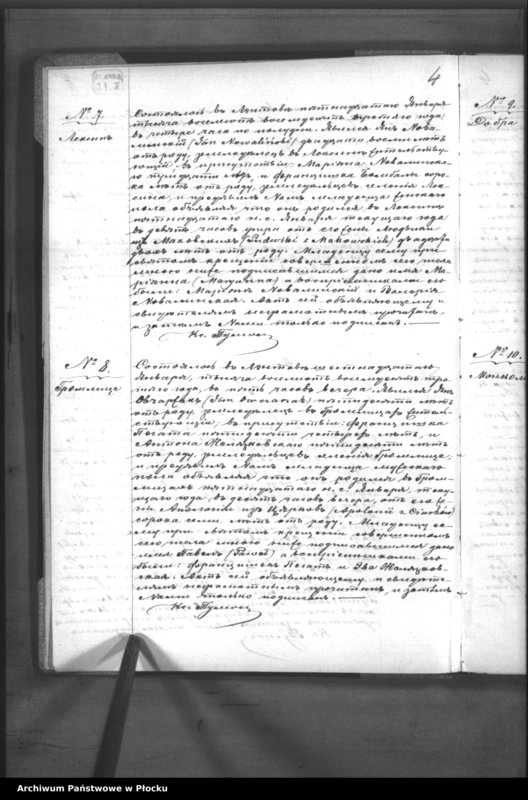 4
№ 7.
Состоялось въ Лентовъ пятнадцатаго Января
тысяча восемьсотъ восемьдесятъ третяго года
въ четыре часа по полудни. Явился Янъ Нова-
линскій (Jan Nowaliński) двадцати восьми лѣтъ
отъ роду, земледѣлецъ въ
въ присутствіи: Маріяна Новалинска-
го тридцати лѣтъ, и Францишка соро-
ка лѣтъ отъ роду, земледѣльцевъ
и предъявилъ Намъ младенца женскаго
пола объявляя что онъ родился въ
пятнадцатаго н. с. Января текущаго года
въ девять часовъ утра отъ его жены Людвики
изъ Маковскихъ (Ludwiki z Makowskich) двадцати
двухъ лѣтъ отъ роду. Младенцу сему при
святомъ крещеніи совершенномъ сего числа
мною ниже подписавшимся дано имя Ма-
ріянна (Maryanna) а воспріемниками его
были: Маріянъ Новалинскій и Валерія
Новалинская. Актъ сей объявляющему и
свидѣтелямъ неграмотнымъ прочитанъ,
и затѣмъ Нами только подписанъ. —
Кс.
№ 8.
Громлице
Состоялось въ Лентовъ шестнадцатаго
Января, тысяча восемьсотъ восемьдесятъ тре-
тяго года, въ пять часовъ вечера. Явился Янъ
Овчарекъ (Jan Owczarek) пятидесяти лѣтъ
отъ роду, земледѣлецъ въ Громлицахъ житель-
ствующій; въ присутствіи: Францишка
Пегата пятидесяти четырехъ лѣтъ, и
Антона пятидесяти лѣтъ
отъ роду, земледѣльцевъ Громлице
и предъявилъ Намъ младенца мужескаго
пола объявляя что онъ родился въ Гром-
лицахъ пятнадцатаго н. с. Января, теку-
щаго года, въ десять часовъ вечера, отъ его же-
ны Аполоніи изъ
сорока семи лѣтъ отъ роду. Младенцу се-
му при святомъ крещеніи совершенномъ
сего числа мною ниже подписавшимся дано
имя Павелъ (Paweł) а воспріемниками его
были: Францишекъ Пегатъ и Эва
Актъ сей объявляющему и свидѣте-
лямъ неграмотнымъ прочитанъ, и затѣмъ
Нами только подписанъ. —
Кс.
№ 9.
Добра
№ 10.
Archiwum Państwowe w Płocku